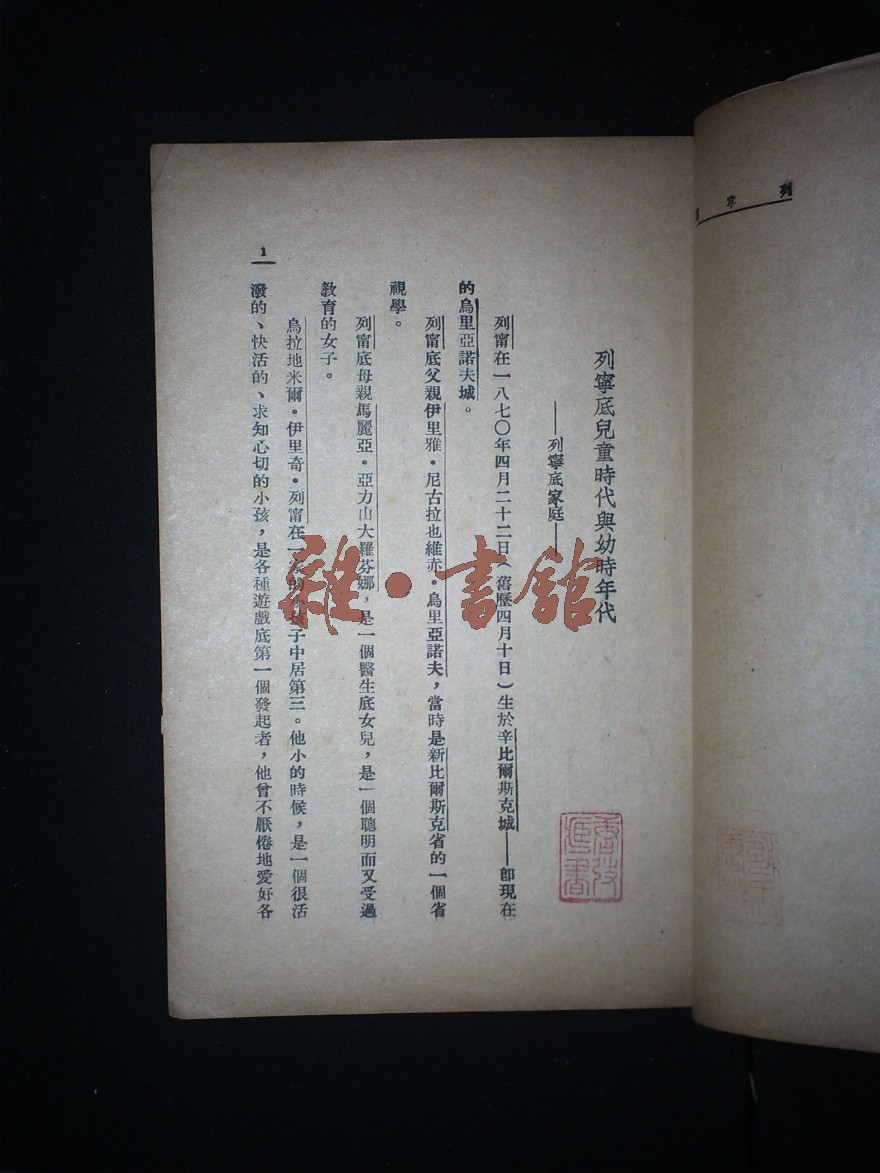 列寧底兒童時代與幼時年代
——列寧底家庭——
列甯在一八七〇年四月二十二日（舊歷四月十日）生於辛比爾斯克城——卽現在
的烏里亞諾夫城。
列甯底父親伊里雅·尼古拉也維赤·烏里亞諾夫，當時是新比爾斯克省的一個省
視學。
列甯底母親馬麗亞·亞力山大羅芬娜，是一個醫生底女兒，是一個聰明而又受過
教育的女子。
烏拉地米爾·伊里奇·列甯在一家的小孩子中居第三。他小的時候，是一個很活
潑的、快活的、求知心切的小孩，是各種遊戲底第一個發起者，他曾不厭倦地愛好各
1
雜·書館
列寧